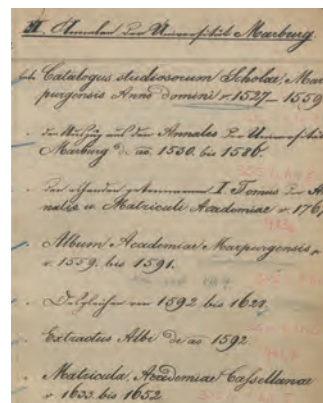 II. Annalen der Universität Marburg.
Catalogus studiosorum Scholae Mar
purgensis Anno domini v. 1527–1559
der Auszug aus den Annales der Universität
Marburg de ao. 1530. bis 1586.
I. Tomus der An
nalis u. Matriculi Academiae v.
Album Academiae Marpurgensis,
v. 1559. bis 1591.
Desgleichen von 1592 bis 1629
Extractus Albi de ao 1592
Matricula Academiae Cassellanae
v. 1633. bis 1652